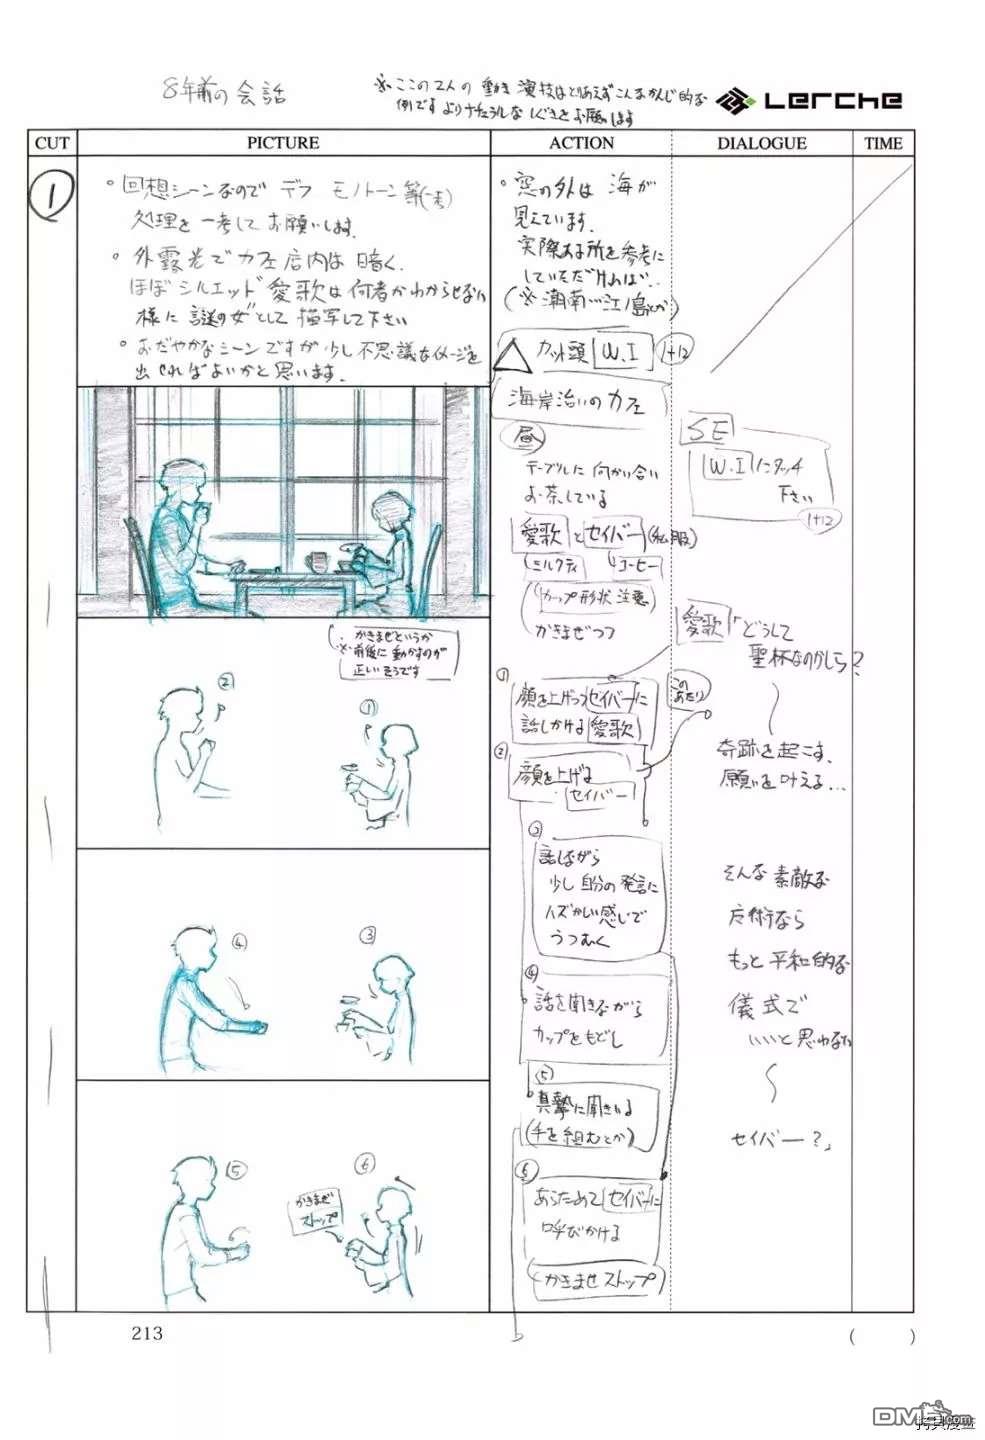 8年前の会話
※ここの2人の動き演技はとりあえずこんなかんじ的な
例です よりナチュラルな しぐさをお願いします
Lerche
CUT
PICTURE
ACTION
DIALOGUE
TIME
1
・回想シーンなので デフ モノトーン等(一考)
処理を一考して お願いします.
・外露光で カフェ店内は 暗く.
ほぼ シルエット 愛歌は何者かわからせない
様に 謎の女として 描写して下さい
・おだやかなシーンですが 少し不思議なイメージを
出せればよいかと思います.
・窓の外は 海が
見えています.
実際ある所を参考に
していただければ‥
(※湘南…江ノ島とか)
カット頭 W.I 1+12
海岸沿いのカフェ
昼
テーブルに向かい合い
お茶している
愛歌 と セイバー (私服)
ミルクティ
コーヒー
カップ形状注意
かきまぜつつ
SE
W.Iにタッチ
下さい
1+12
かきまぜというか
※前後に動かすのが
正しいそうです
②
①
①
顔を上げつつ セイバーに
話しかける 愛歌
②
顔を上げる
セイバー
このあたり
愛歌「どうして
聖杯なのかしら?
奇跡を起こす.
願いを叶える…
③
話しながら
少し自分の発言に
ハズかしい感じで
うつむく
そんな素敵な
方術なら
もっと平和的な
儀式で
いいと思わない
セイバー?」
④
③
④
話を聞きながら
カップをもどし
⑤
真摯に聞きいる
(手を組むとか)
⑤
⑥
かきまぜ
ストップ
⑥
あらためて セイバーに
呼びかける
かきまぜストップ
213
(　　)
DMZ.com
拷贝漫畫